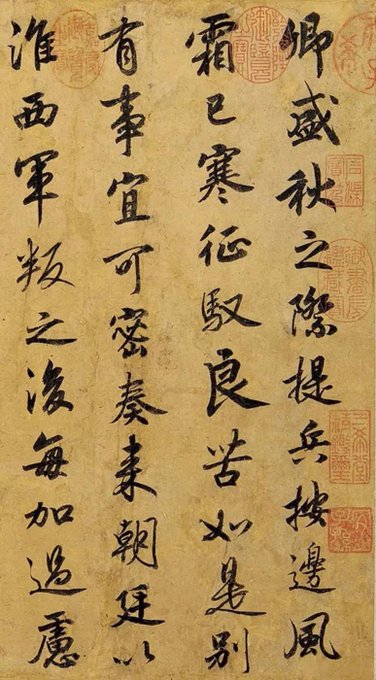 卿盛秋之際提兵按邊風
霜已寒征馭良苦如是別
有事宜可密奏来朝廷以
淮西軍叛之後每加過慮